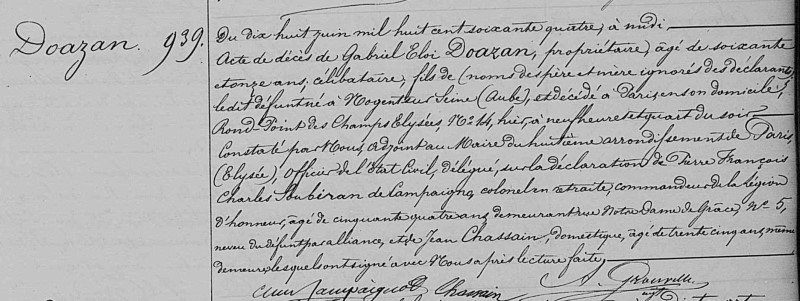 Doazan. 939.
Du dix huit juin mil huit cent soixante quatre, à midi.
Acte de décès de Gabriel Eloi Doazan, propriétaire, âgé de soixante
et onze ans, célibataire, fils de (noms des père et mère ignorés des déclarants)
ledit défunt né à Nogent sur Seine (Aube), et décédé à Paris en son domicile,
Rond-Point des Champs Elysées, No. 14, hier, à neuf heures et quart du soir.
Constaté par Nous, adjoint au Maire du huitième arrondissement de Paris,
(Elysée), officier de l'Etat Civil, délégué, sur la déclaration de Pierre François
Charles Soubiran de Campaigno, colonel en retraite, commandeur de la légion
d'honneur, âgé de cinquante quatre ans, demeurant rue Notre Dame de Grâce, No 5,
neveu du défunt par alliance, et de Jean Chassain, domestique, âgé de trente cinq ans, même
demeure, lesquels ont signé avec Nous après lecture faite,
Chassain